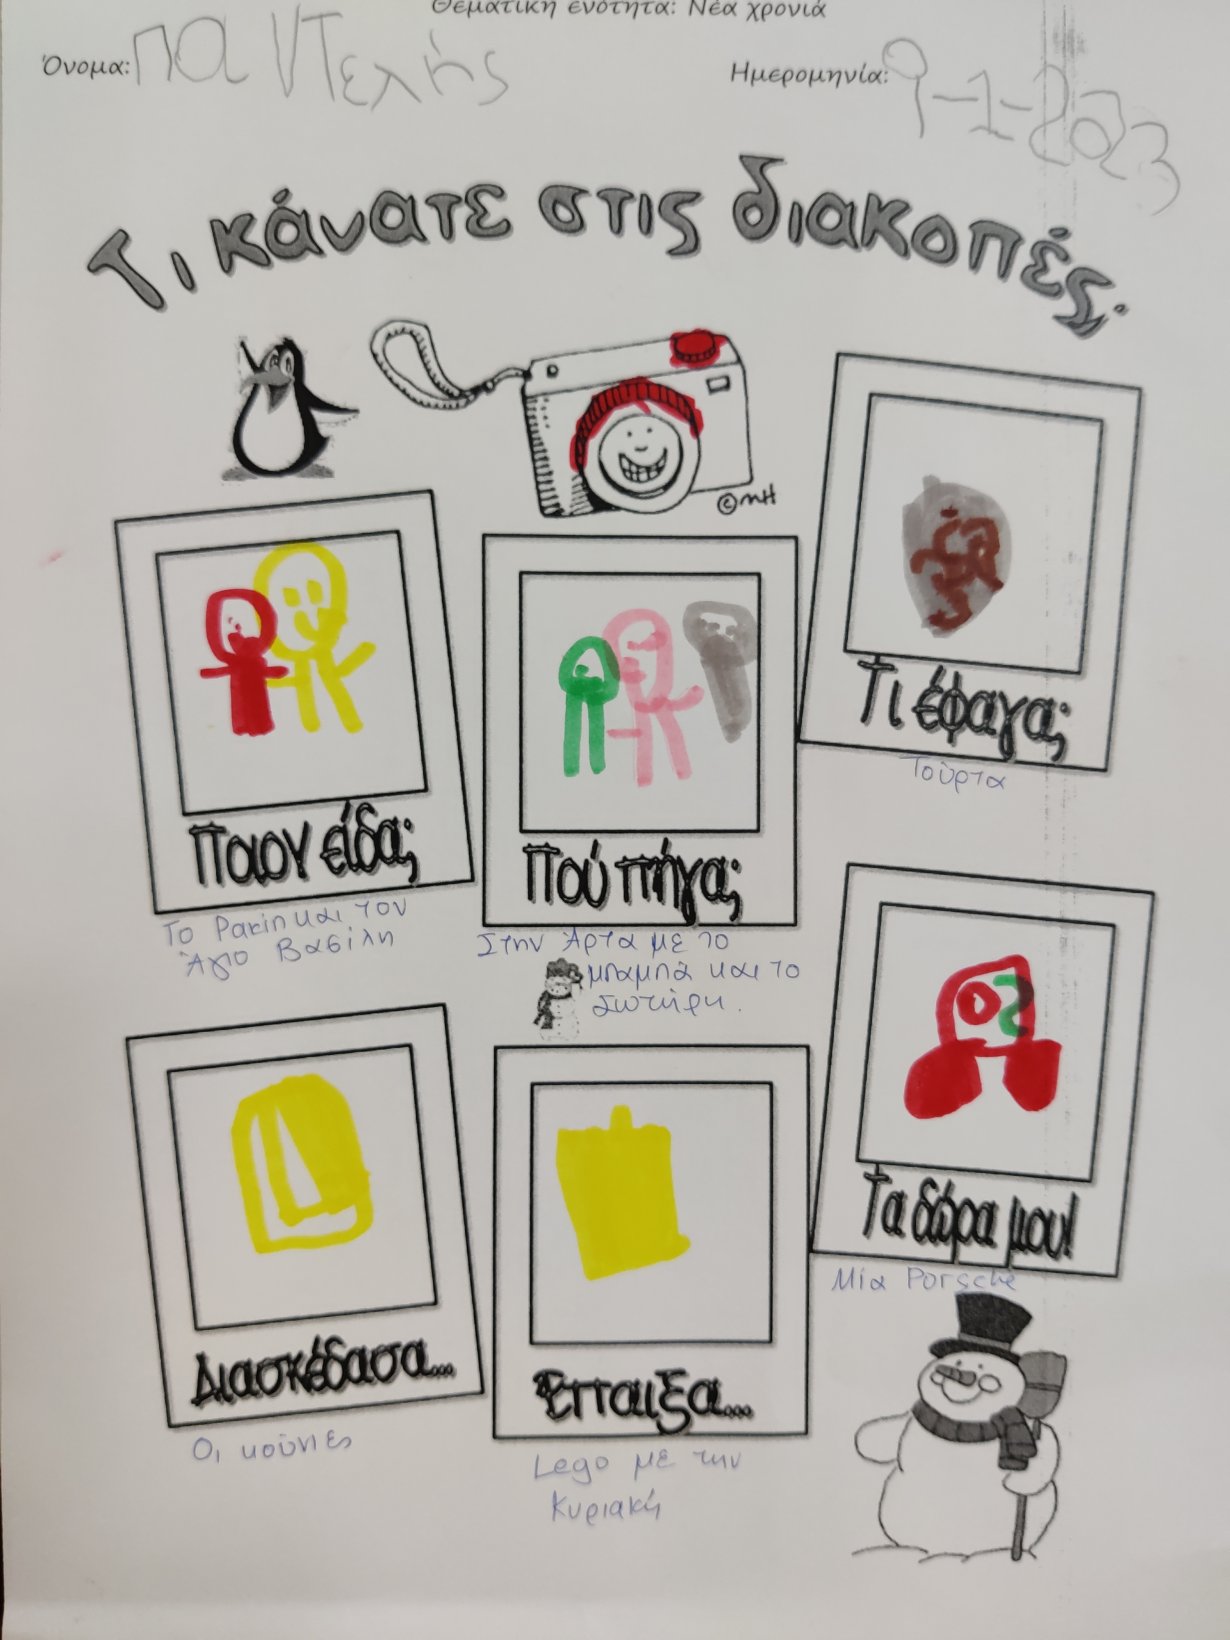 Θεματική ενότητα: Νέα χρονιά
Όνομα: ΠΑΝΤελής
Ημερομηνία: 9-1-2023
Τι κάνατε στις διακοπές;
©MH
Ποιον είδα;
Το Ρακίν και τον
Άγιο Βασίλη
Πού πήγα;
Στην Άρτα με το
μπαμπά και το
Σωτήρη.
Τι έφαγα;
Τούρτα
Διασκέδασα...
Οι κούνιες
Έπαιξα...
Lego με την
Κυριακή
Τα δώρα μου!
Μία Porsche